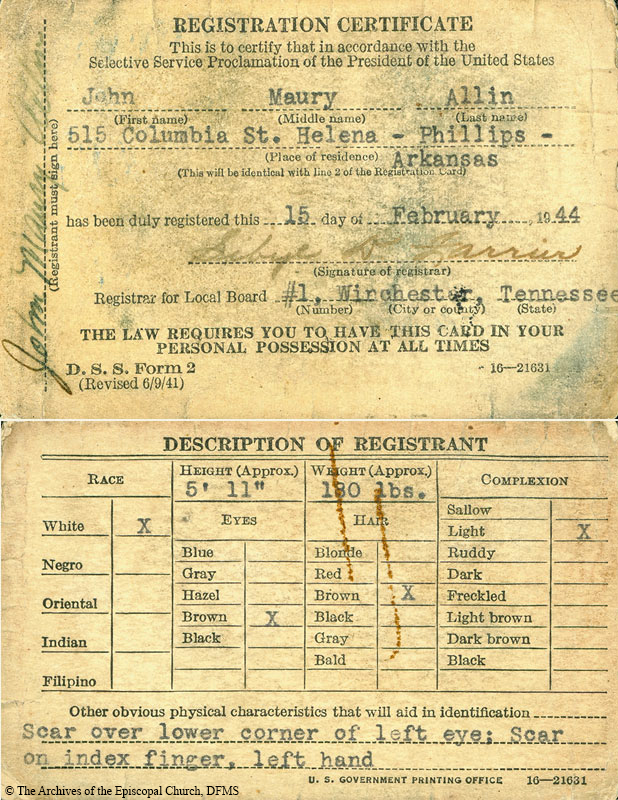 REGISTRATION CERTIFICATE
This is to certify that in accordance with the
Selective Service Proclamation of the President of the United States
John Maury Allin
(First name) (Middle name) (Last name)
515 Columbia St. Helena - Phillips -
(Place of residence) Arkansas
(This will be identical with line 2 of the Registration Card)
has been duly registered this 15 day of February, 1944
(Signature of registrar)
Registrar for Local Board #1, Winchester, Tennessee
(Number) (City or county) (State)
THE LAW REQUIRES YOU TO HAVE THIS CARD IN YOUR
PERSONAL POSSESSION AT ALL TIMES
D. S. S. Form 2 16—21631
(Revised 6/9/41)
John Maury Allin
(Registrant must sign here)
DESCRIPTION OF REGISTRANT
RACE
White X
Negro
Oriental
Indian
Filipino
HEIGHT (Approx.)
5' 11"
EYES
Blue
Gray
Hazel
Brown X
Black
WEIGHT (Approx.)
180 lbs.
HAIR
Blonde
Red
Brown X
Black
Gray
Bald
COMPLEXION
Sallow
Light X
Ruddy
Dark
Freckled
Light brown
Dark brown
Black
Other obvious physical characteristics that will aid in identification
Scar over lower corner of left eye; Scar
on index finger, left hand
U. S. GOVERNMENT PRINTING OFFICE 16—21631
© The Archives of the Episcopal Church, DFMS